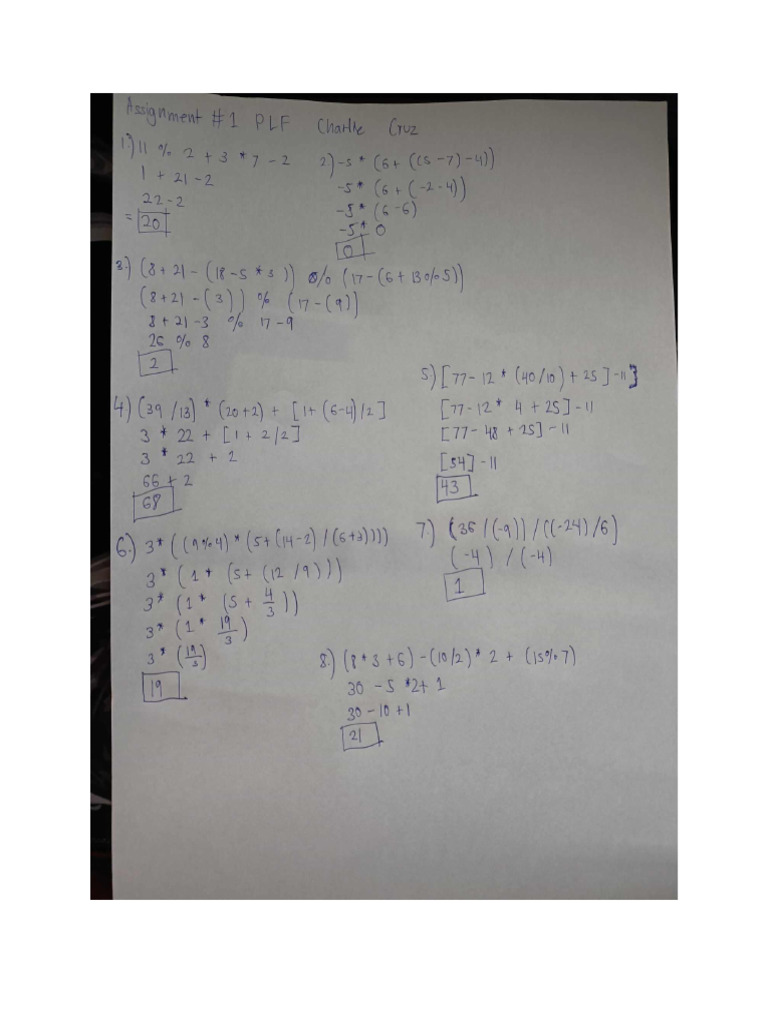 Assignment #1 PLF Charlie Cruz
1.) 11 % 2 + 3 * 7 - 2
1 + 21 - 2
22 - 2
= 20
2) -5 * (6 + ((5 - 7) - 4))
-5 * (6 + (-2 - 4))
-5 * (6 - 6)
-5 * 0
0
3.) (8 + 21 - (18 - 5 * 3)) % (17 - (6 + 13 % 5))
(8 + 21 - (3)) % (17 - (9)]
8 + 21 - 3 % 17 - 9
26 % 8
2
4) (39 / 13) * (20 + 2) + [1 + (6 - 4) / 2]
3 * 22 + [1 + 2 / 2]
3 * 22 + 2
66 + 2
68
5) [77 - 12 * (40/10) + 25] - 11}
[77 - 12 * 4 + 25] - 11
[77 - 48 + 25] - 11
[54] - 11
43
6.) 3 * ((9 % 4) * (5 + (14 - 2) / (6 + 3))))
3 * (1 * (5 + (12 / 9)))
3 * (1 * (5 + 4/3))
3 * (1 * 19/3)
3 * (19/3)
19
7.) (36 / (-9)) / ((-24) / 6)
(-4) / (-4)
1
8.) (8 * 3 + 6) - (10/2) * 2 + (15 % 7)
30 - 5 * 2 + 1
30 - 10 + 1
21